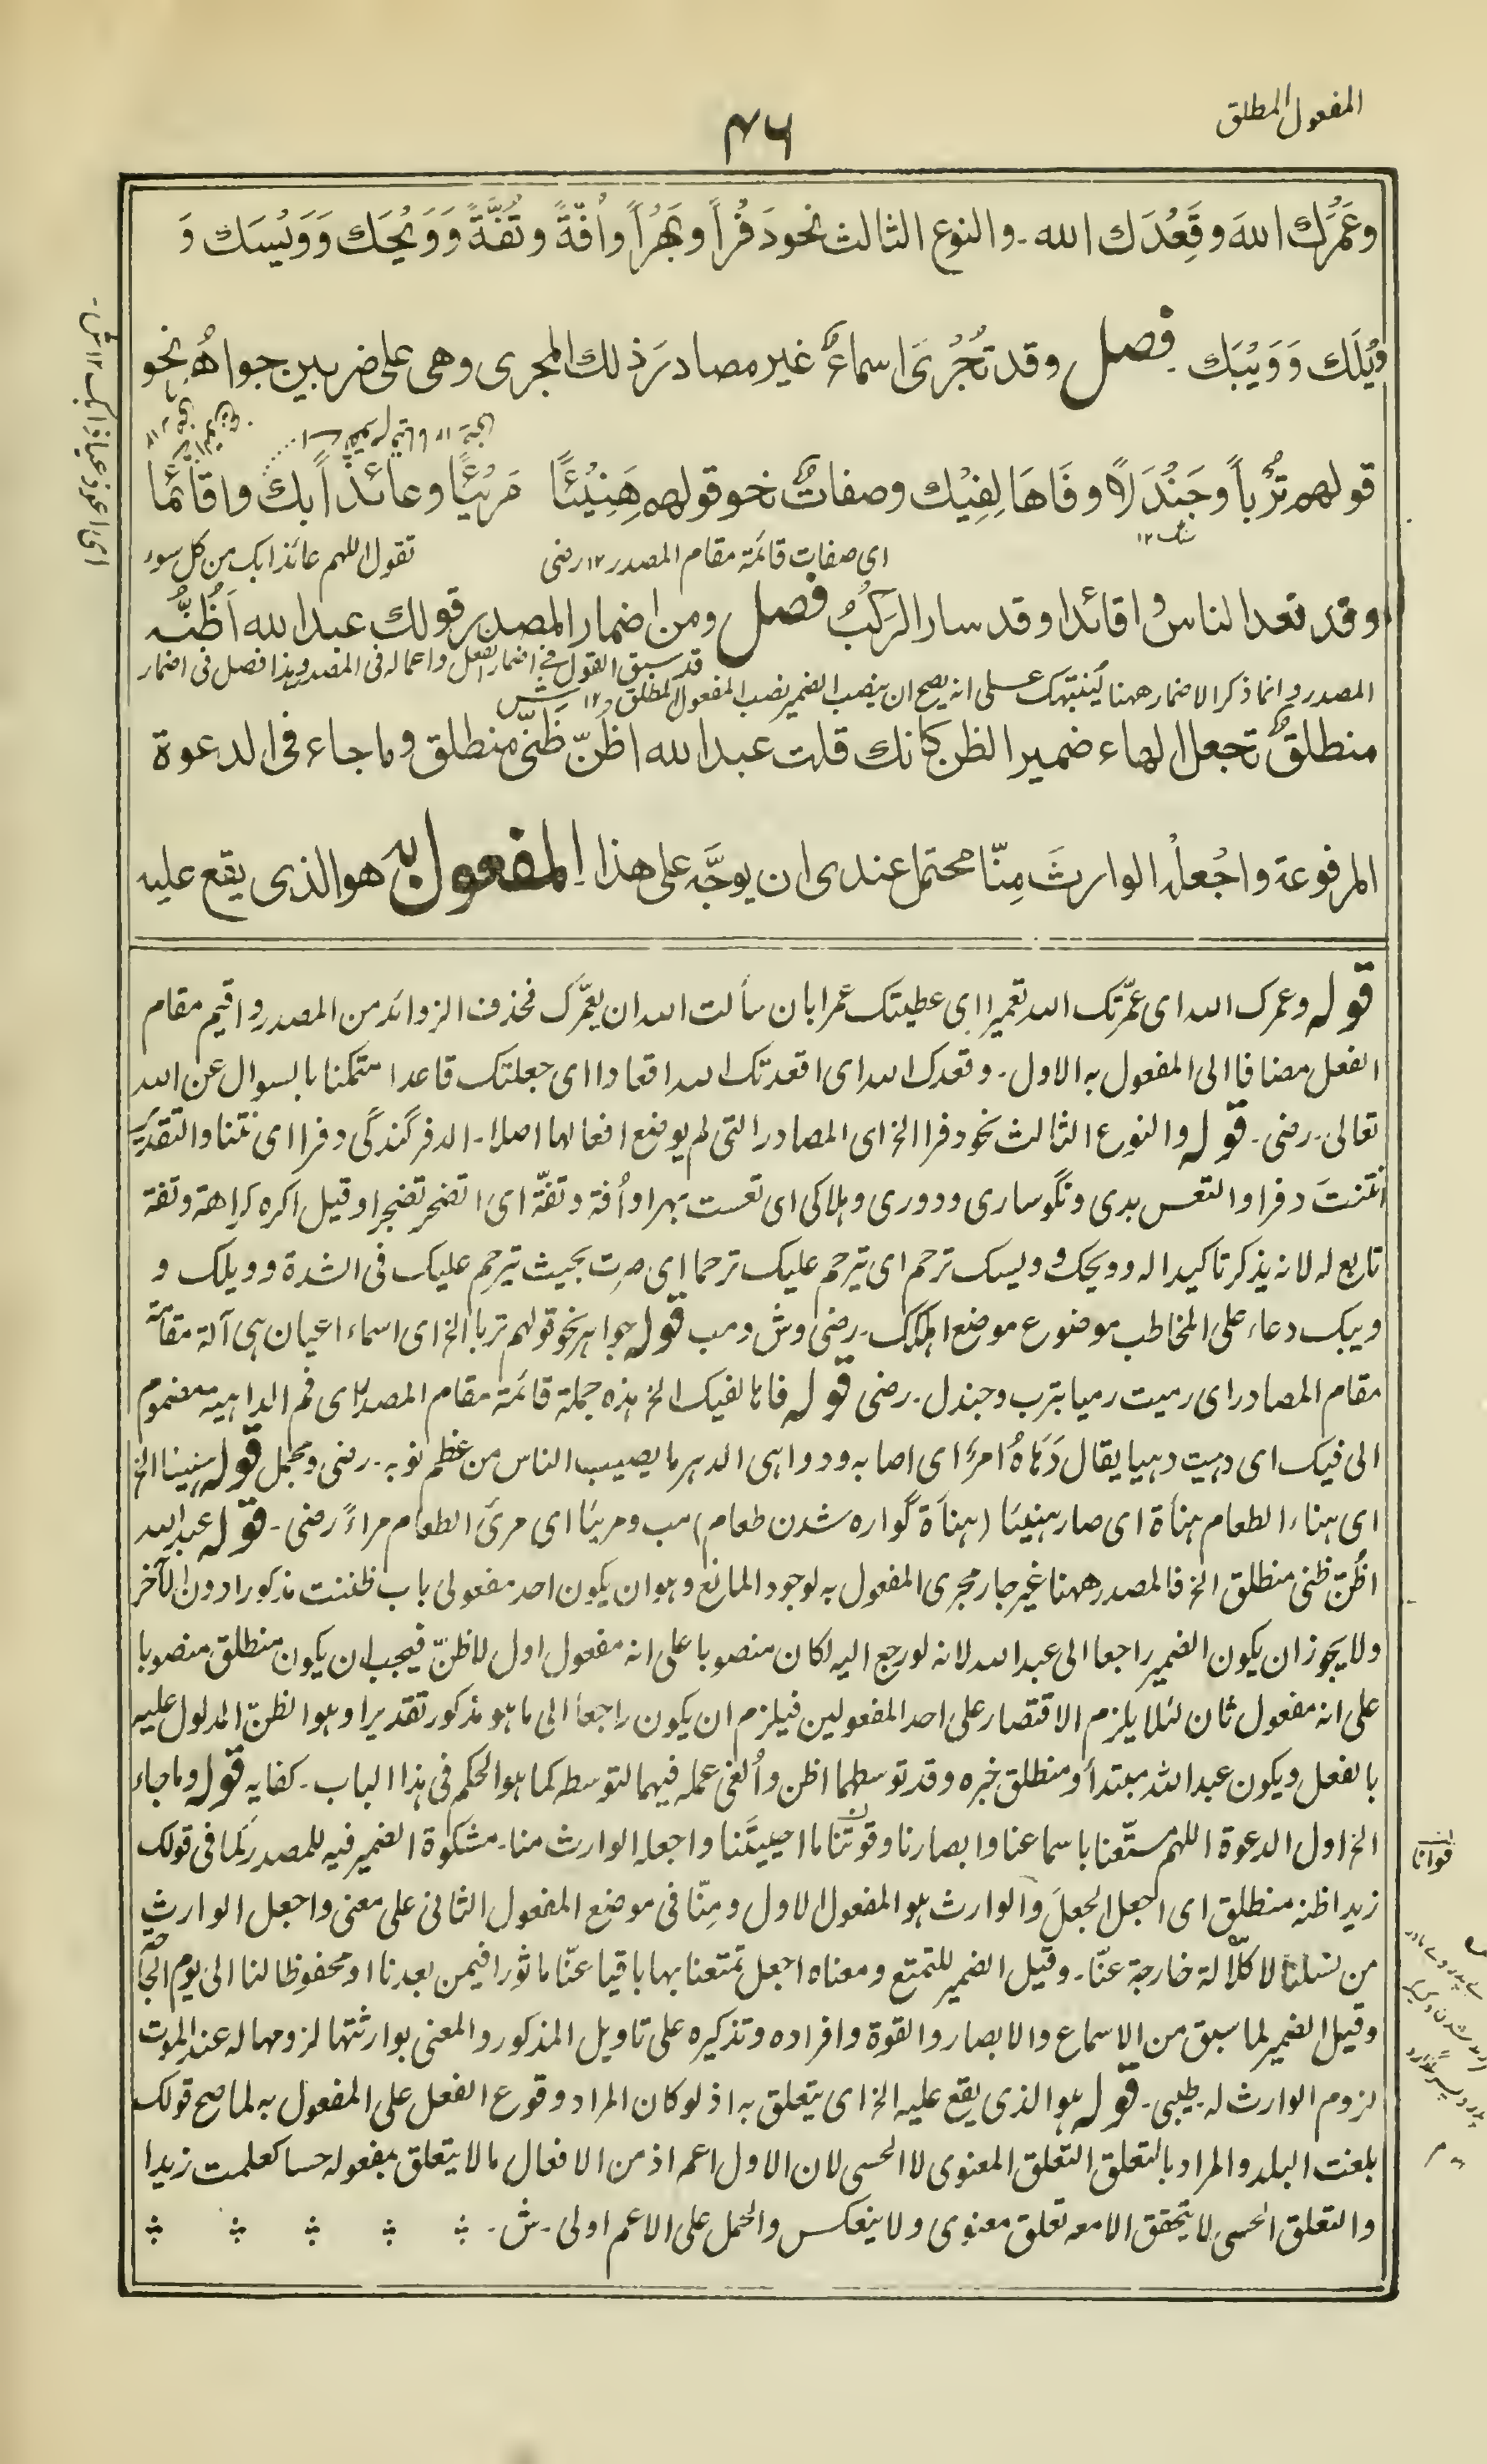 المفعول المطلق
٤٦
وعَمْرَك اللهَ وقَعْدَك الله - والنوع الثالث نحو دَفْراً وبَهْراً واُفّةً وتُفّةً وَوَيْحَك وَوَيْسَك وَ
وَيْلَك وَوَيْبَك - فصل وقد تُجْرٰى اسماءٌ غير مصادرَ ذلك المجرى وهى على ضربين جواهرُ نحو
قولهم تُرْباً وجَنْدَلاً وفَاهَا لِفِيْك وصفاتٌ نحو قولهم هَنِيْئًا مَرِيْئًا وعائذاً بك واقائما
سنگ ١٢
اى صفات قائمة مقام المصدر ١٢ رضى
تقول اللهم عائذا بك من كل سوء
وقد قعد الناسُ واقائدا وقد سار الركبُ فصل ومن اضمار المصدر قولك عبد الله اَظُنُّه
قد سبق القول فى اضمار الفعل واعماله فى المصدر وهذا فصل فى اضمار
المصدر وانما ذكر الاضمار ههنا لينبهك على انه يصح ان ينصب الضمير نصب المفعول المطلق ١٢ ش
منطلقٌ تجعل الهاء ضمير الظن كانك قلت عبد الله اظنّ ظنّى منطلق وما جاء فى الدعوة
المرفوعة واجْعلْه الوارثَ مِنّا محتمل عندى ان يوجَّه على هذا المفعول به هو الذى يقع عليه
قوله وعمرك الله اى عمّرتك الله تعميرا اى عطيتك عمرا بان سألت الله ان يعمّرك فحذف الزوائد من المصدر واقيم مقام
الفعل مضافا الى المفعول به الاول - وقعدك الله اى اقعدتك الله اقعادا اى جعلتك قاعدا متمكنا بالسوال عن الله
تعالى - رضى - قوله والنوع الثالث نحو دفرا الخ اى المصادر التى لم يوضع افعالها اصلا - الدفر گندگى دفرا اى نتنا والتقدير
انتنتَ دفرا والتعس بدى ونگونسارى ودورى وهلاكى اى تعست بهرا واُفة وتفّة اى اتضجر تضجرا وقيل اكره كراهة وتفة
تابع له لانه يذكر تاكيدا له وويحك وويسك ترحم اى يترحم عليك ترحما اى صرت بحيث يترحم عليك فى الشدة وويلك و
ويبك دعاء على المخاطب موضوع موضع اهلكك - رضى وش ومب قوله جواهر نحو قولهم تربا الخ اى اسماء اعيان هى آلة مقامة
مقام المصادر اى رميت رميا بترب وجندل - رضى قوله فاها لفيك الخ هذه جملة قائمة مقام المصدر اى فم الداهية مضموم
الى فيك اى دهيت دهيا يقال دَهَاهُ امرٌ اى اصابه ودواهى الدهر ما يصيب الناس من عظم نوبه - رضى ومجمل قوله هنيئا الخ
اى هناء الطعام هناَة اى صار هنيئا (هناَة گواره شدن طعام) مب ومريئا اى مرئ الطعام مراءً رضى - قوله عبد الله
اظنّ ظنى منطلق الخ فالمصدر ههنا غير جار مجرى المفعول به لوجود المانع وهو ان يكون احد مفعولى باب ظننت مذكورا دون الآخر
ولا يجوز ان يكون الضمير راجعا الى عبد الله لانه لو رجع اليه لكان منصوبا على انه مفعول اول لاظنّ فيجب ان يكون منطلق منصوبا
على انه مفعول ثان لئلا يلزم الاقتصار على احد المفعولين فيلزم ان يكون راجعا الى ما هو مذكور تقديرا وهو الظنّ المدلول عليه
بالفعل ويكون عبد الله مبتدأ ومنطلق خبره وقد توسطهما اظن واُلغى عمله فيهما لتوسطه كما هو الحكم فى هذا الباب - كفايه قوله وما جاء
الخ اول الدعوة اللهم متّعنا باسماعنا وابصارنا وقوتنا ما احييتَنا واجعله الوارث منا - مشكوة الضمير فيه للمصدر كما فى قولك
قواتنا
زيد اظنه منطلق اى اجعل الجعلَ والوارث هو المفعول الاول ومِنّا فى موضع المفعول الثانى على معنى واجعل الوارث
من نسلنا لا كلالة خارجة عنّا - وقيل الضمير للتمتع ومعناه اجعل تمتعنا بها باقيا عنّا ماثورا فيمن بعدنا او محفوظا لنا الى يوم الحاجة
وقيل الضمير لما سبق من الاسماع والابصار والقوة وافراده وتذكيره على تاويل المذكور والمعنى بوارثتها لزومها له عند الموت
لزوم الوارث له طيبى - قوله هو الذى يقع عليه الخ اى يتعلق به اذ لو كان المراد وقوع الفعل على المفعول به لما صح قولك
بلغت البلد والمراد بالتعلق التعلق المعنوى لا الحسى لان الاول اعم اذ من الافعال ما لا يتعلق بمفعوله حسا كعلمت زيدا
والتعلق الحسى لا يتحقق الا معه تعلق معنوى ولا ينعكس والحمل على الاعم اولى - ش -